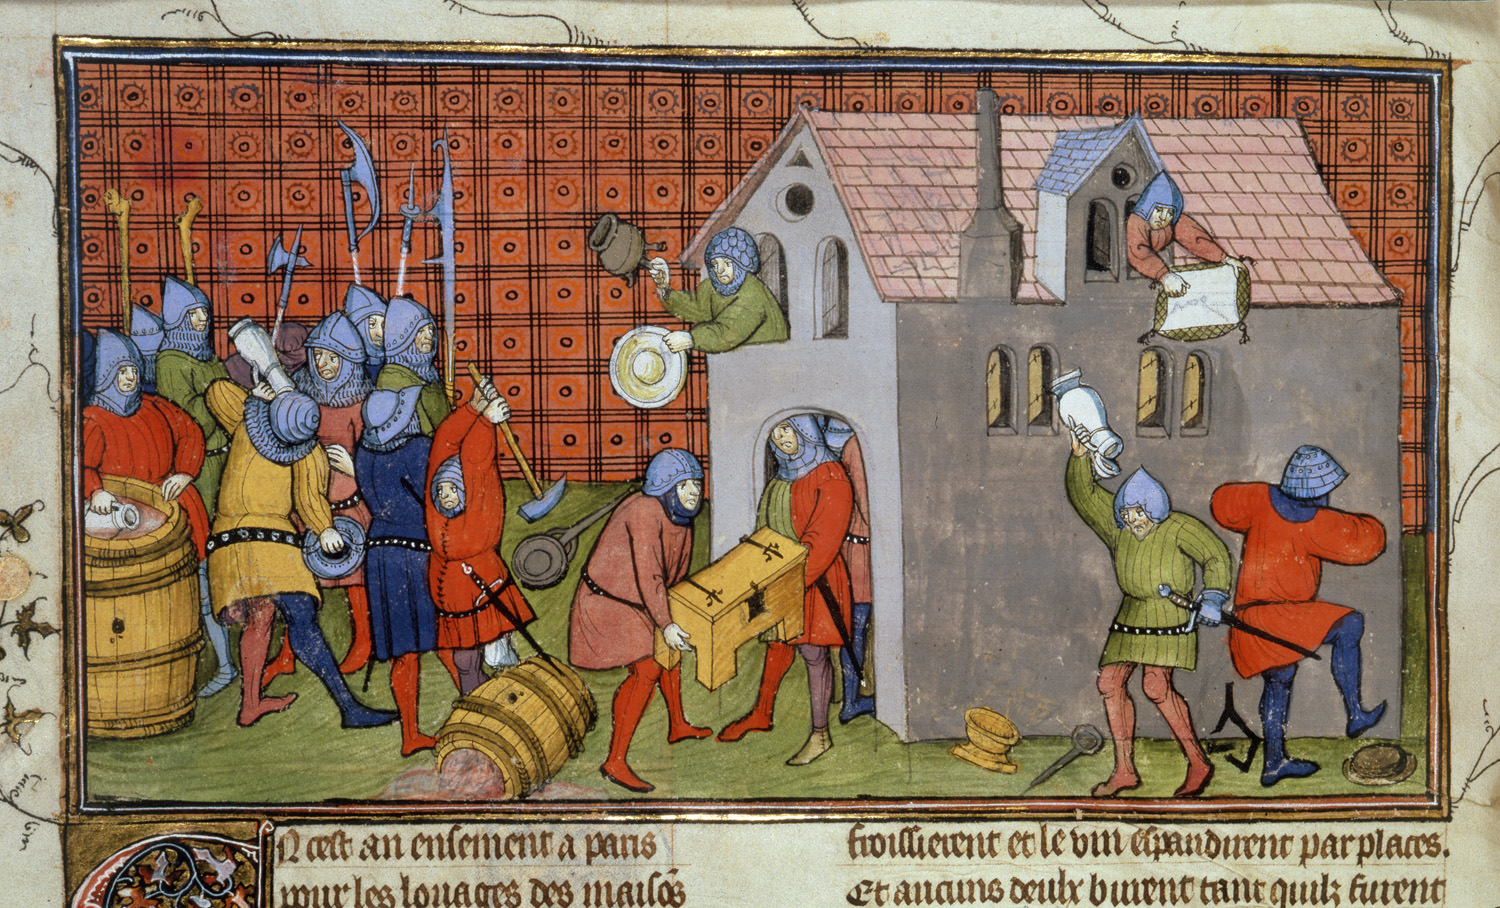 En cest an ensement a paris
pour les louages des maisōs
froissierent et le vin espandirent par places.
Et aucuns deulx burent tant quilz furent